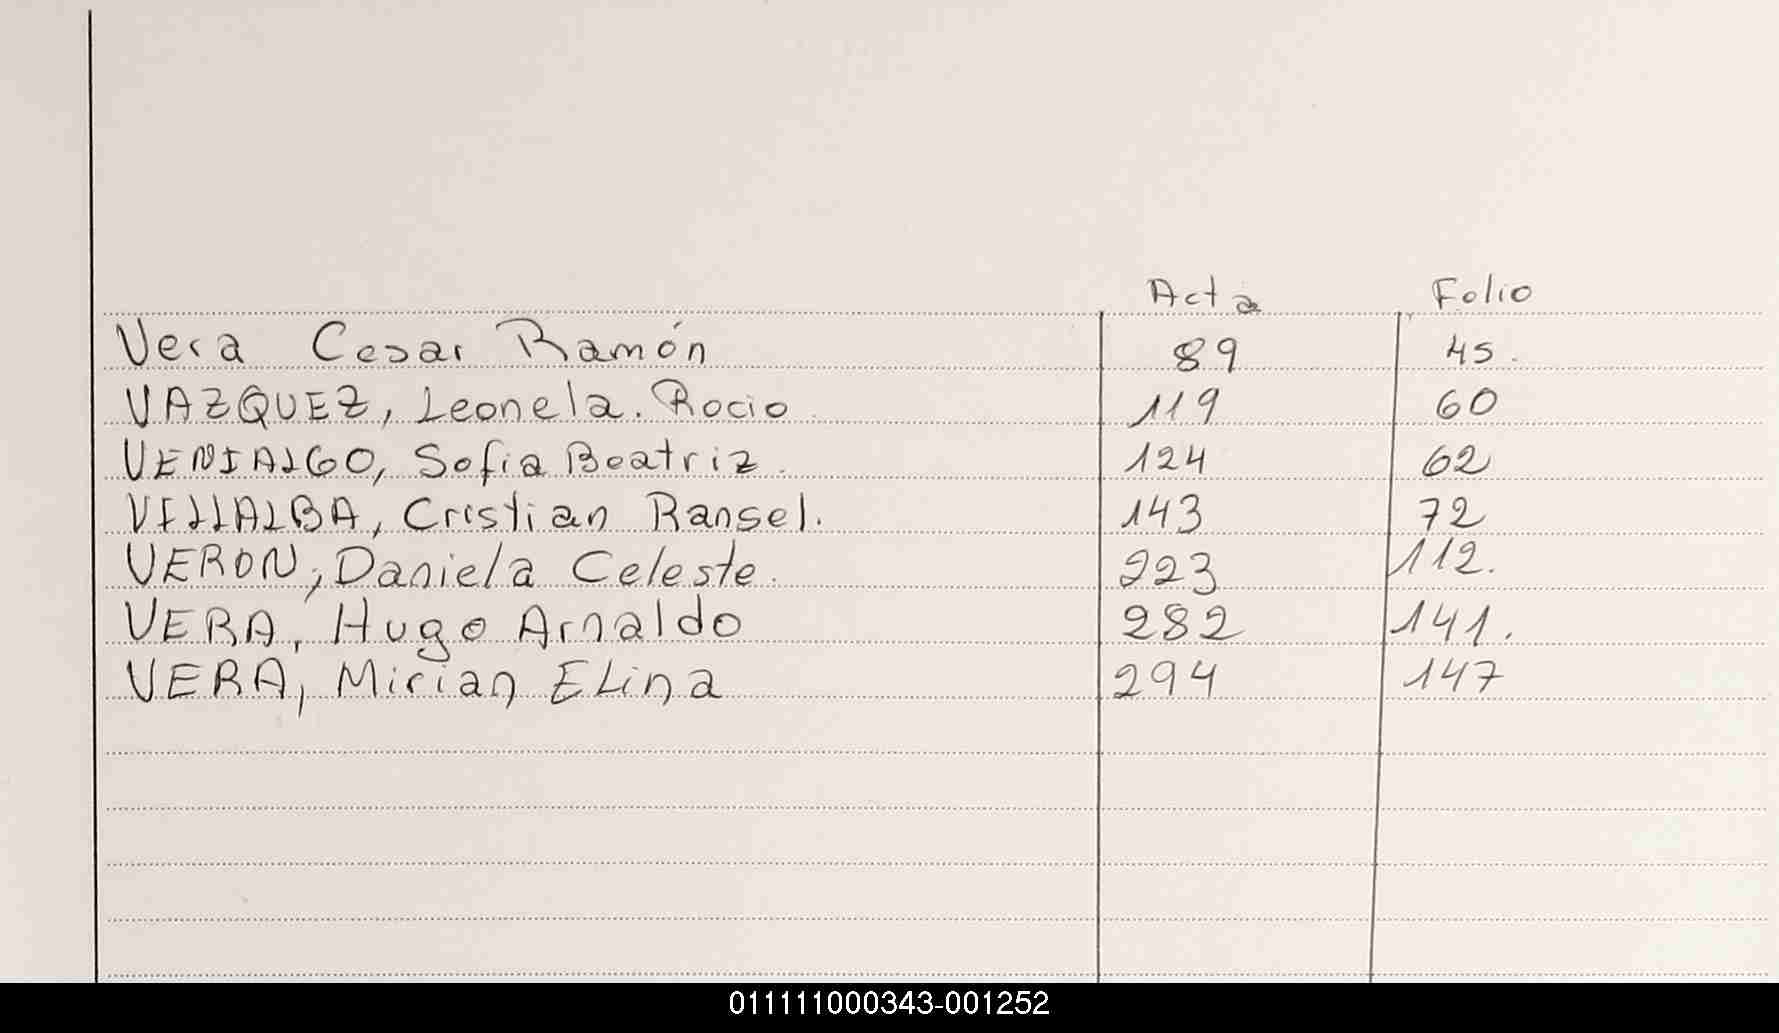 Acta Folio
Vera Cesar Ramón 89 45.
VAZQUEZ, Leonela. Rocio 119 60
VENIALGO, Sofia Beatriz. 124 62
VILLALBA, Cristian Rangel. 143 72
VERON, Daniela Celeste. 223 112.
VERA, Hugo Arnaldo 282 141.
VERA, Mirian ELina 294 147
011111000343-001252